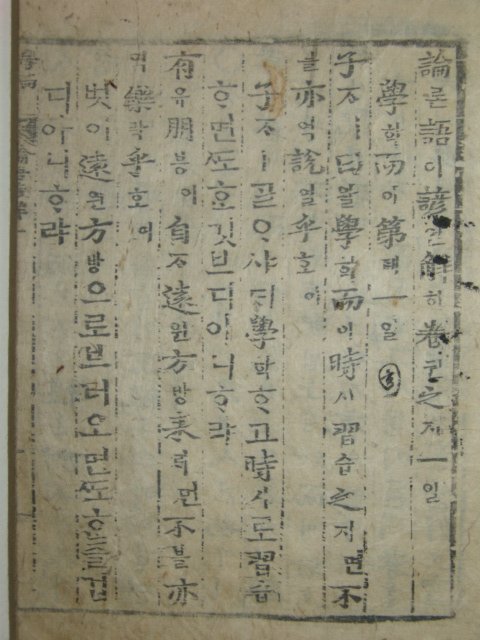 論론語어諺언解ᄒᆡ卷권之지一일
學ᄒᆞᆨ而이第뎨一일
子ᄌᆞㅣ曰왈學ᄒᆞᆨ而이時시習습之지면不
블亦역說열乎호아
子ᄌᆞㅣᄀᆞᆯᄋᆞ샤ᄃᆡ學ᄒᆞᆨᄒᆞ고時시로習습
ᄒᆞ면ᄯᅩᄒᆞᆫ깃브디아니ᄒᆞ랴
有유朋붕이自ᄌᆞ遠원方방來ᄅᆡ면不블亦
역樂락乎호아
벗이遠원方방으로브터오면ᄯᅩᄒᆞᆫ즐겁
디아니ᄒᆞ랴